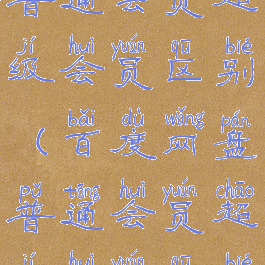 普通会员超
jí huì yuán qū bié
级会员区别
bǎi dù wǎng pán
(百度网盘
pǔ tōng huì yuán chāo
普通会员超
jí huì yuán qū bié